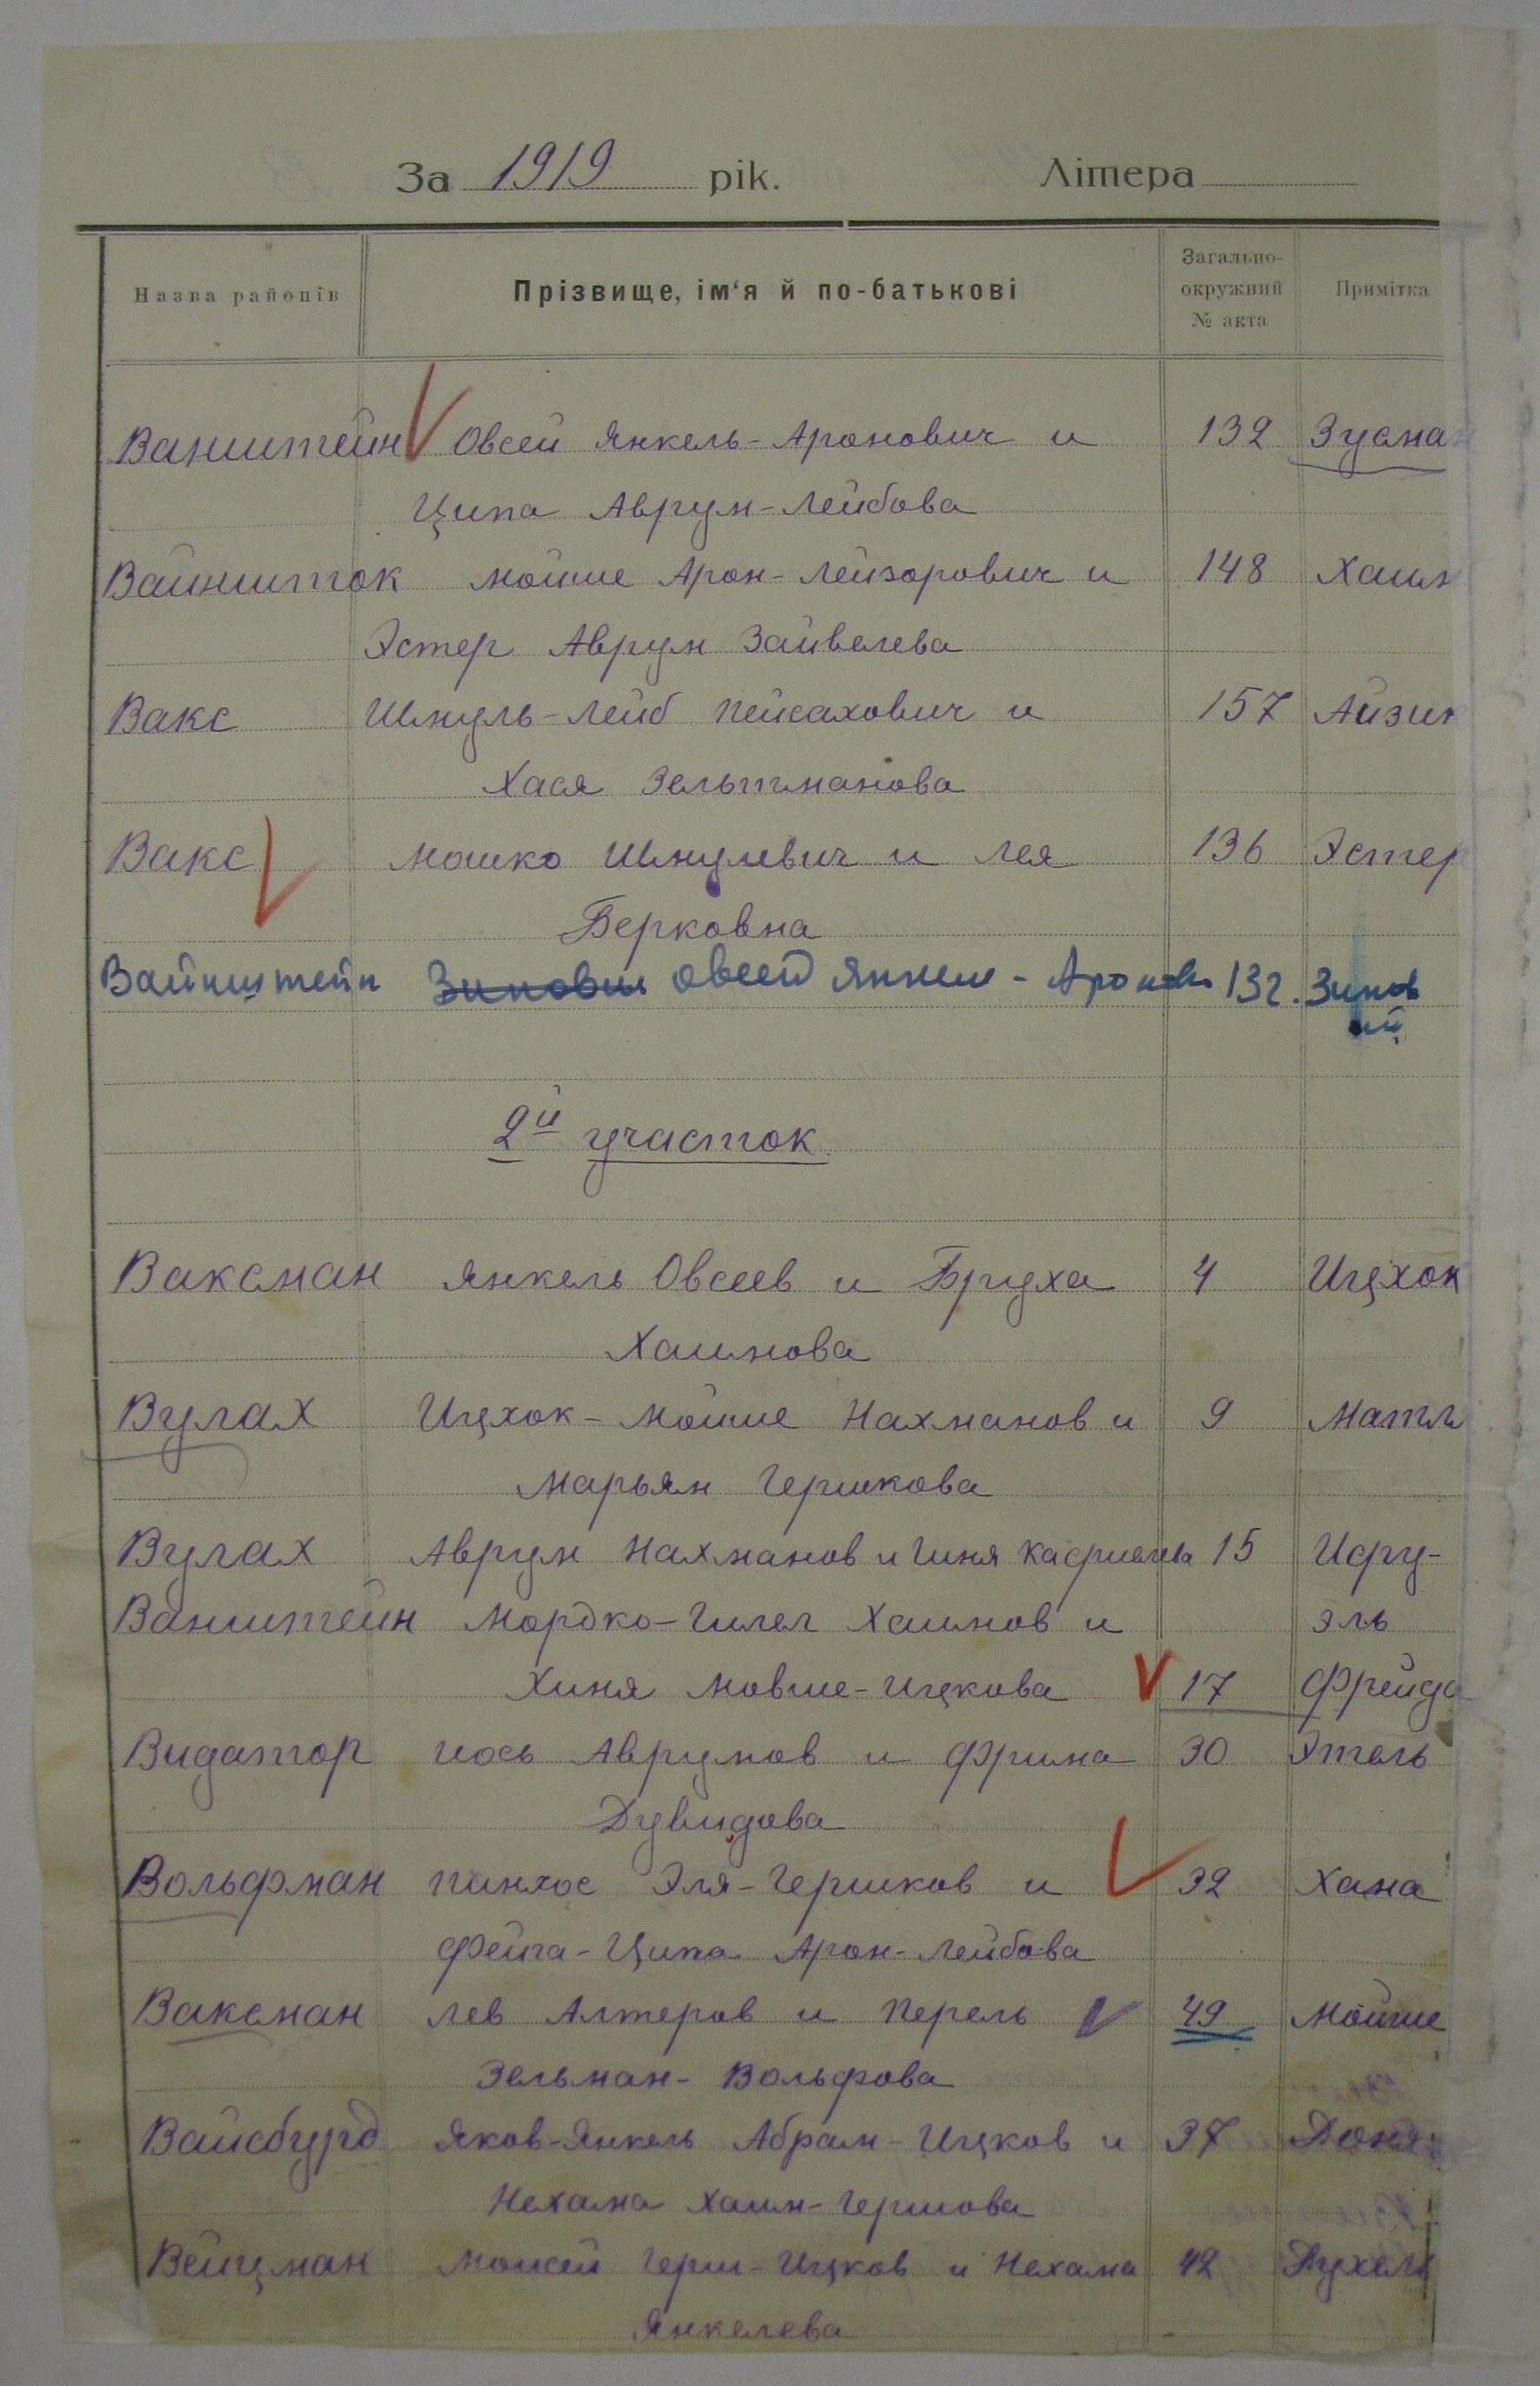 За 1919 рік. Літера
Назва районів Прізвище, ім‘я й по-батькові Загально-окружний № акта Примітка
Ванштейн Овсей Янкель-Аронович и 132 Зусман
Ципа Аврум-Лейбова
Вайншток Мойше Арон-Лейзорович и 148 Хаим
Эстер Аврум Зайвелева
Вакс Шмуль-Лейб Пейсахович и 157 Айзик
Хася Зельтманова
Вакс Мошко Шмулевич и Лея 136 Эстер
Берковна
Вайнштейн Зиновии Овсей Янкель-Аронов 132. Зинов
ий
2й участок
Ваксман Янкель Овсеев и Бруха 4 Ицхок
Хаимова
Вулах Ицхок-Мойше Нахманов и 9 Матл
Марьям Гершкова
Вулах Аврум Нахманов и Гиня 15 Исру-
Ванштейн Мордко-Гилел Хаимов и эль
Хиня Мовше-Ицкова 17 Фрейда
Видатор Иось Аврумов и Фрима 30 Этель
Дувидова
Вольфман Пинхос Эля-Гершков и 32 Хана
Фейга-Ципа Арон-Лейбова
Ваксман Лев Алтеров и Перель 49 Мойше
Зельман-Вольфова
Вайсбурд Яков-Янкель Абрам-Ицков и 37 Доня
Нехама Хаим-Гершова
Вейцман Мошей Герш-Ицков и Нехама 42
Янкелева